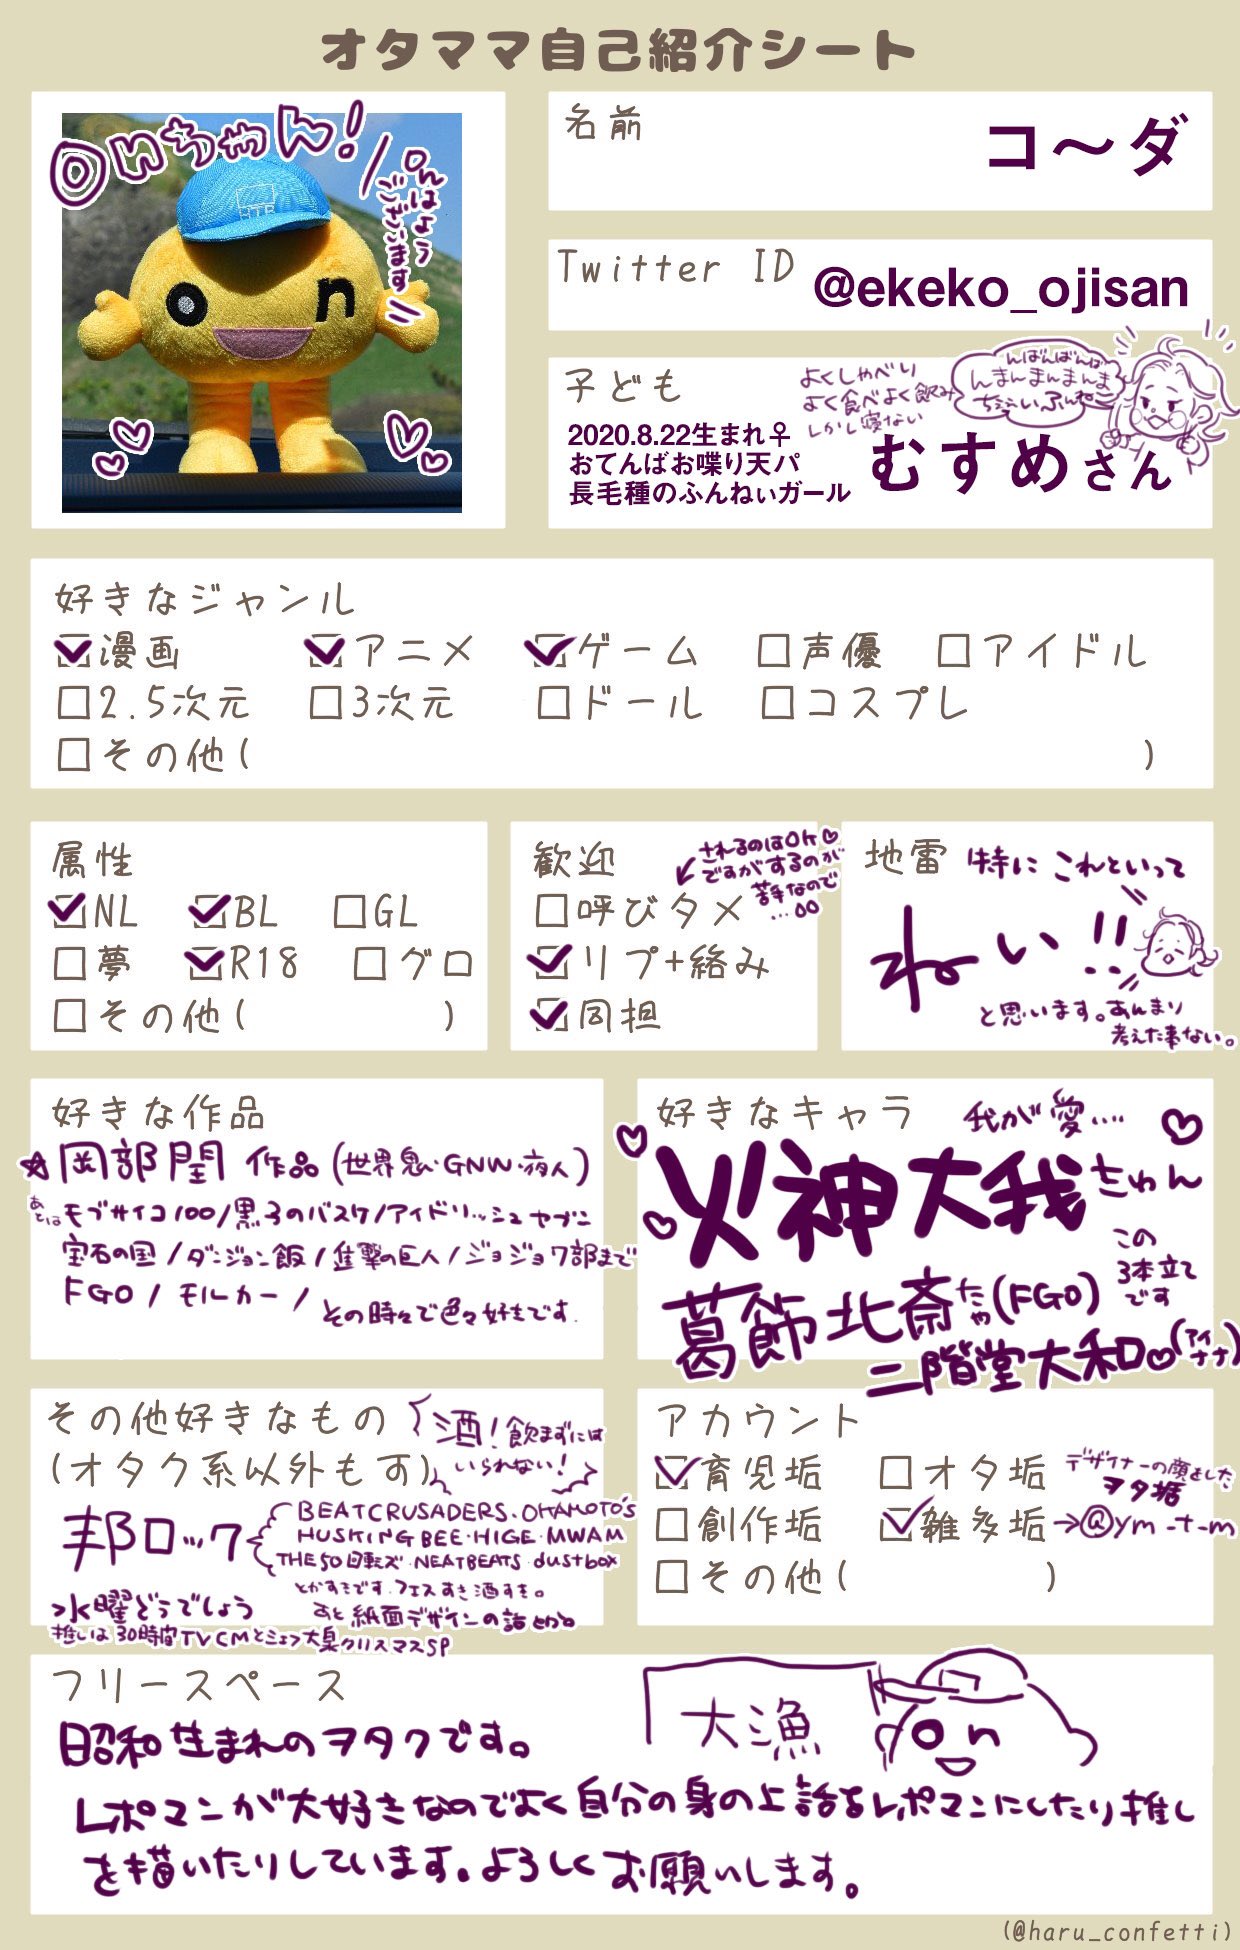 オタママ自己紹介シート
onちゃん!
onはようございます
HTB
on
名前
コ〜ダ
Twitter ID
@ekeko_ojisan
子ども
よくしゃべり
よく食べよく飲み
しかし寝ない
んばんばんば
んまんまんまんま
2020.8.22生まれ♀
おてんばお喋り天パ
長毛種のふんねぃガール
むすめさん
好きなジャンル
☑漫画 ☑アニメ ☑ゲーム □声優 □アイドル
□2.5次元 □3次元 □ドール □コスプレ
□その他( )
属性
☑NL ☑BL □GL
□夢 ☑R18 □グロ
□その他( )
歓迎
されるのはOK♡
ですがするのが
苦手なので
□呼びタメ
☑リプ+絡み
☑同担
地雷
特にこれといって
ねぃ!!
と思います。あんまり
考えた事ない。
好きな作品
☆岡部閏 作品(世界鬼・GNW・夜人)
あとは
モブサイコ100/黒子のバスケ/アイドリッシュセブン
宝石の国/ダンジョン飯/進撃の巨人/ジョジョ7部まで
FGO/モルカー/その時々で色々好きです.
好きなキャラ
我が愛....
火神大我ちゃん
葛飾北斎たゃ(FGO)
この
3本立て
です
二階堂大和♡(アイナナ)
その他好きなもの
(オタク系以外も可)
酒!飲まずには
いられない!
邦ロック
BEATCRUSADERS.OKAMOTO's
HUSKING BEE・HIGE・MWAM
THE50回転ズ・NEATBEATS・dustbox
とかすきです.フェスすき酒すき。
あと紙面デザインの話とか。
水曜どうでしょう
推しは30時間TVCMとシェフ大泉クリスマスSP
アカウント
☑育児垢 □オタ垢
デザイナーの顔をした
ヲタ垢
□創作垢 ☑雑多垢→@ym-t-m
□その他( )
フリースペース
大漁
on
昭和生まれのヲタクです。
レポマンが大好きなのでよく自分の身の上話をレポマンにしたり推し
を描いたりしています。よろしくお願いします。
(@haru_confetti)